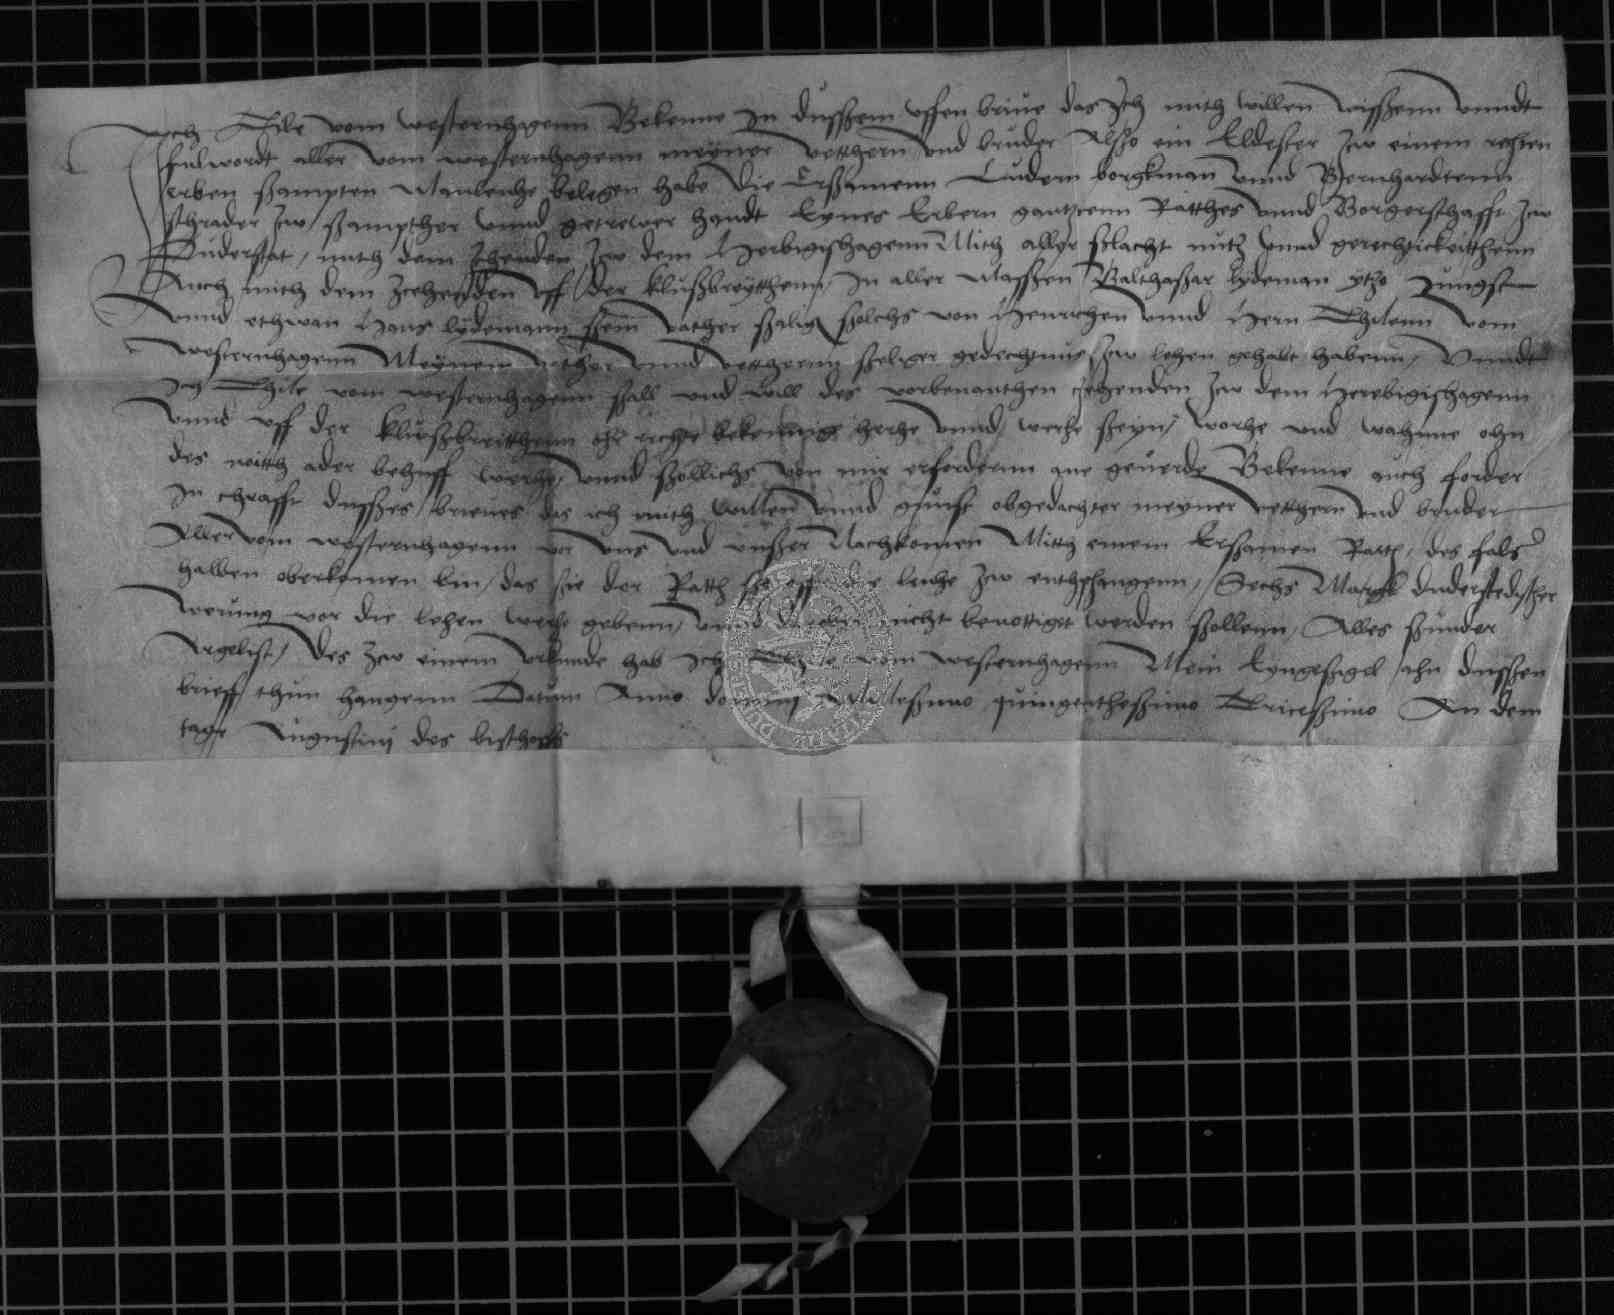 Ich Tile vom westernhagenn Bekenne In dussem uffen brive das Ich mith willen wissenn unndt
fulwordt aller vom westernhagenn meyner vetthern und bruder Also ein Eldester Zcw einem rechten
erben ßampten Manlenhe belegen habe die Erßamenn Ludern borgkman unnd Bernhardtenn
schrader Zcw ßampther unnd getrewer handt Eynes Erbern gantzenn Ratthes unnd Borgerschafft Zcw
Duderstat, mith dem Zehenden Zcw dem Herbigishagenn Mith aller slacht nutz unnd gerechtickeitthenn
Auch mith dem Zcehenden uff der klußbreytthenn, In aller Massen Balthaßar lydeman ytzo Jungst
unnd ethwan Hans lydemann ßein vather ßalig ßolchs von Henrichen unnd Hern Thilenn vom
westernhagenn Meynem vather unnd vetthernn ßeliger gedechtnus Zcw lehen gehabt habenn, Unndt
Ich Thile vom westernhagenn ßall und will des vorbenanthen zcehenden Zcw dem Herebigishagenn
unnd uff der klußbreitthenn ohr rechte bekennige herhe unnd werhe ßeyn, worhe und wahnne ohn
des noitth ader behuff werhe, unnd ßollichs von mir erfordernn ane geverde Bekenne auch forder
In chrafft dusses brieves das ich mith willen unnd gunst obgedachter meyner vetthern und bruder
Aller vom westernhagenn vor uns und unßer Nachkomen Mitth einem Erßamen Ratth, des fals
halben oberkomen bin, das sie der Rath die lenhe Zcw enthpfangenn, Sechs Margk duderstedischer
werung vor die lehen werhe gebenn, unnd nicht benottiget werden ßollenn, Alles ßunder
Argelist, Des Zcw einem urkunde hab Ich vom westernhagenn Mein Eyngesigel ahn dussen
brieff thun hangenn Datum Anno domini Millesimo quingenthesimo Tricessimo An dem
tage Augustinj des bischoffs